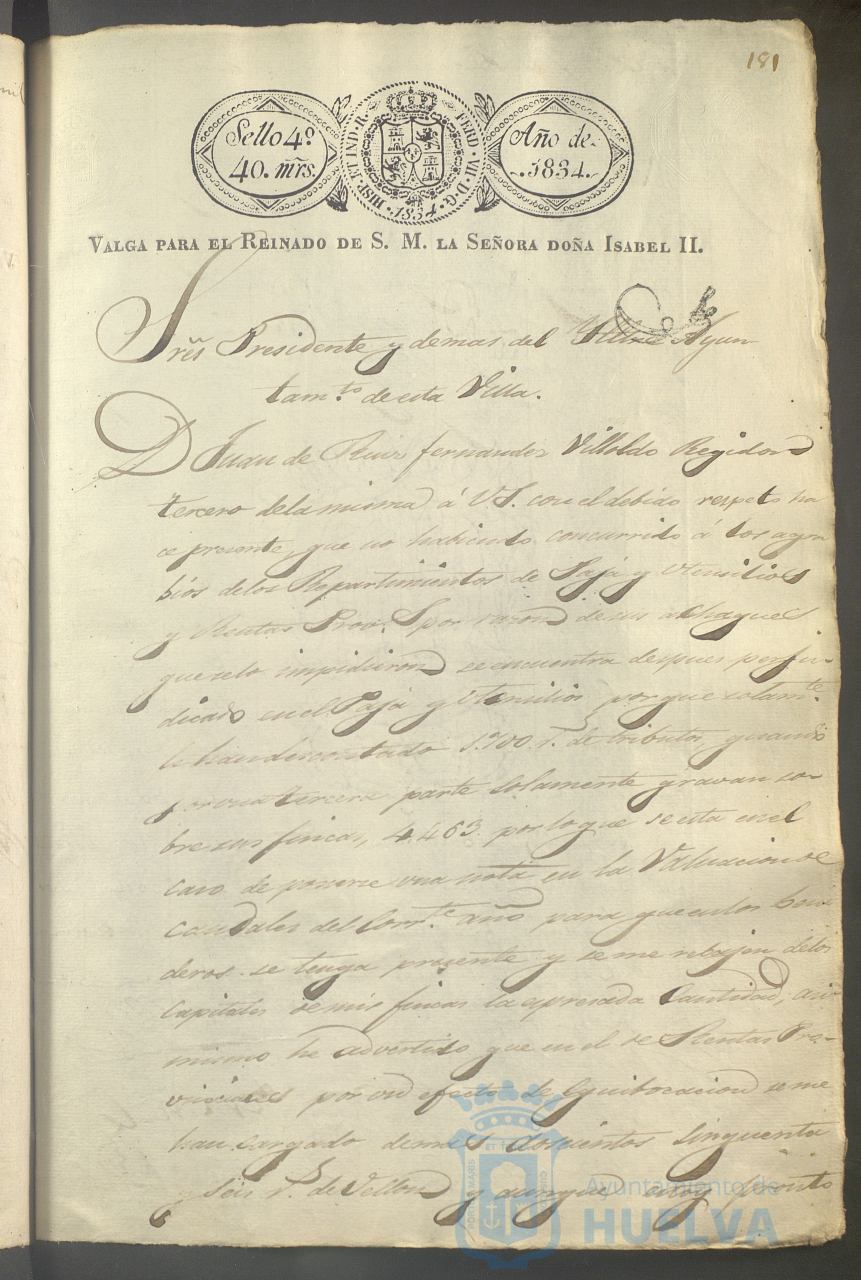 181
Sello 4º
40. mrs.
HISP. ET IND. R. FERD. VII. D. G.
1834
Año de
1834.
VALGA PARA EL REINADO DE S. M. LA SEÑORA DOÑA ISABEL II.
Sres Presidente y demas del Illmo Ayun
tamto de esta Villa.
D Juan de Ruiz fernandez Villoldo Regidor
tercero dela misma á VS. con el debido respeto ha
ce presente, que no habiendo concurrido á los agra
bios delos Repartimientos de Paja y Utensilios
y Rentas Prov.s por razon de sus achaques
que selo impidieron se encuentra despues perju
dicado en el Paja y Utensilios porque solamte
le han descontado 1.700 r.s de tributos, quando
por una tercera parte solamente gravan so
bre sus fincas, 4.463. por lo que se esta en el
caso de ponerse una nota en la Valuacion de
caudales del Corrte año para que en los beni
deros se tenga presente y se me rebajen delos
Capitales de mis fincas la apresada Cantidad, asi
mismo he advertido que en el de Rentas Pro
vinciales por un efecto de Equibocacion se me
han cargado demas doscientos sinquenta
y seis r.s de Vellon y aunque estoy pronto
PORTUS MARIS ET TERRAE CUSTODIA
Ayuntamiento de
HUELVA